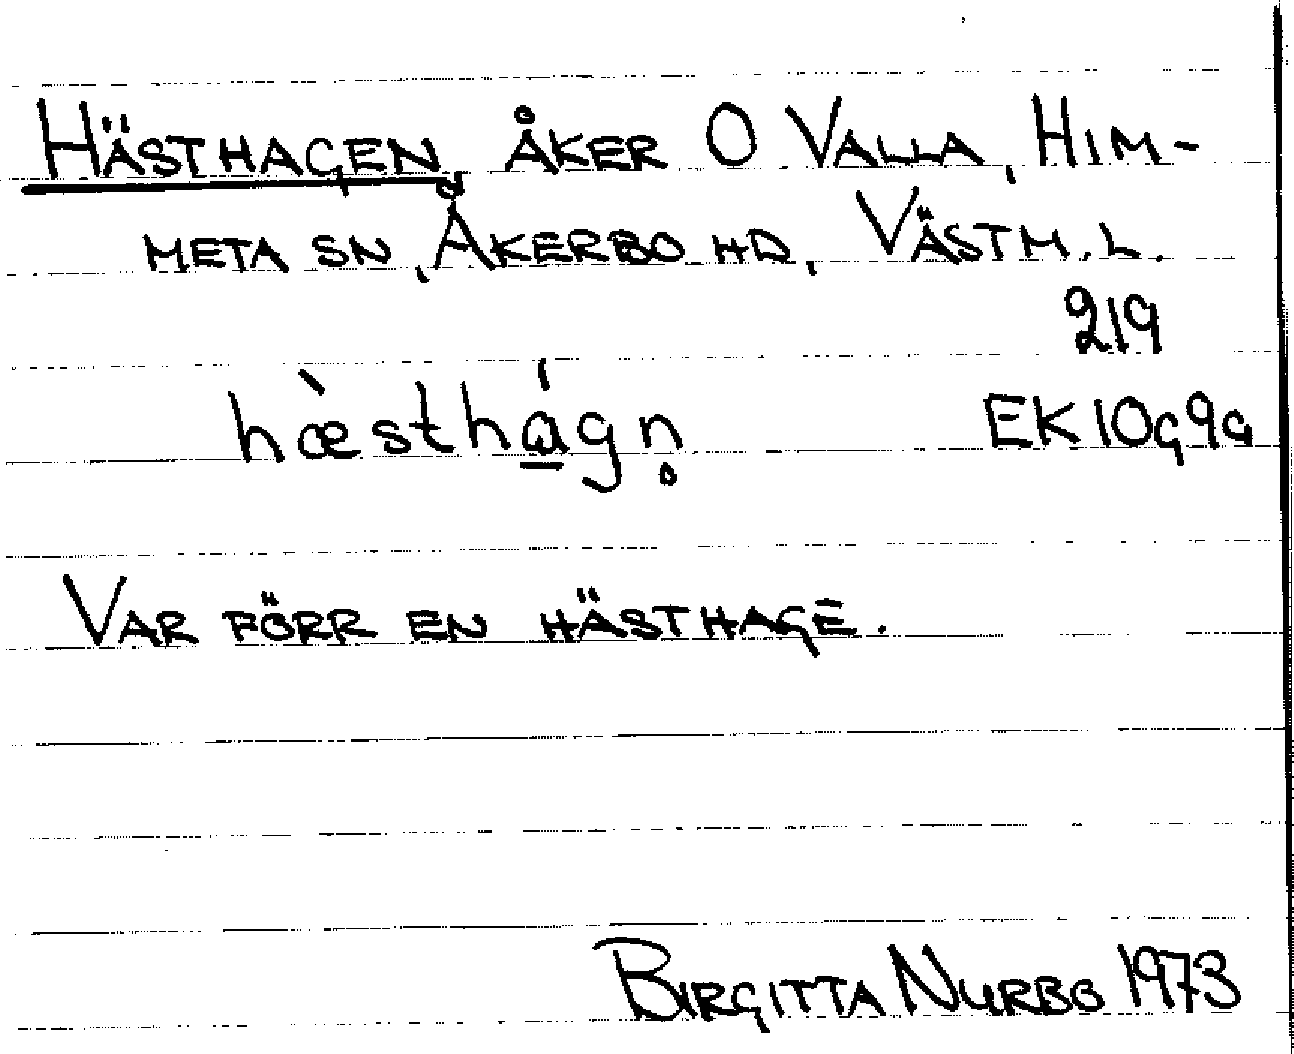 HÄSTHAGEN, ÅKER O VALLA, HIM-
META SN, ÅKERBO HD, VÄSTM. L.
219
hæ̀sthágn̥ EK 10g9g
VAR FÖRR EN HÄSTHAGE.
BIRGITTA NURBO 1973